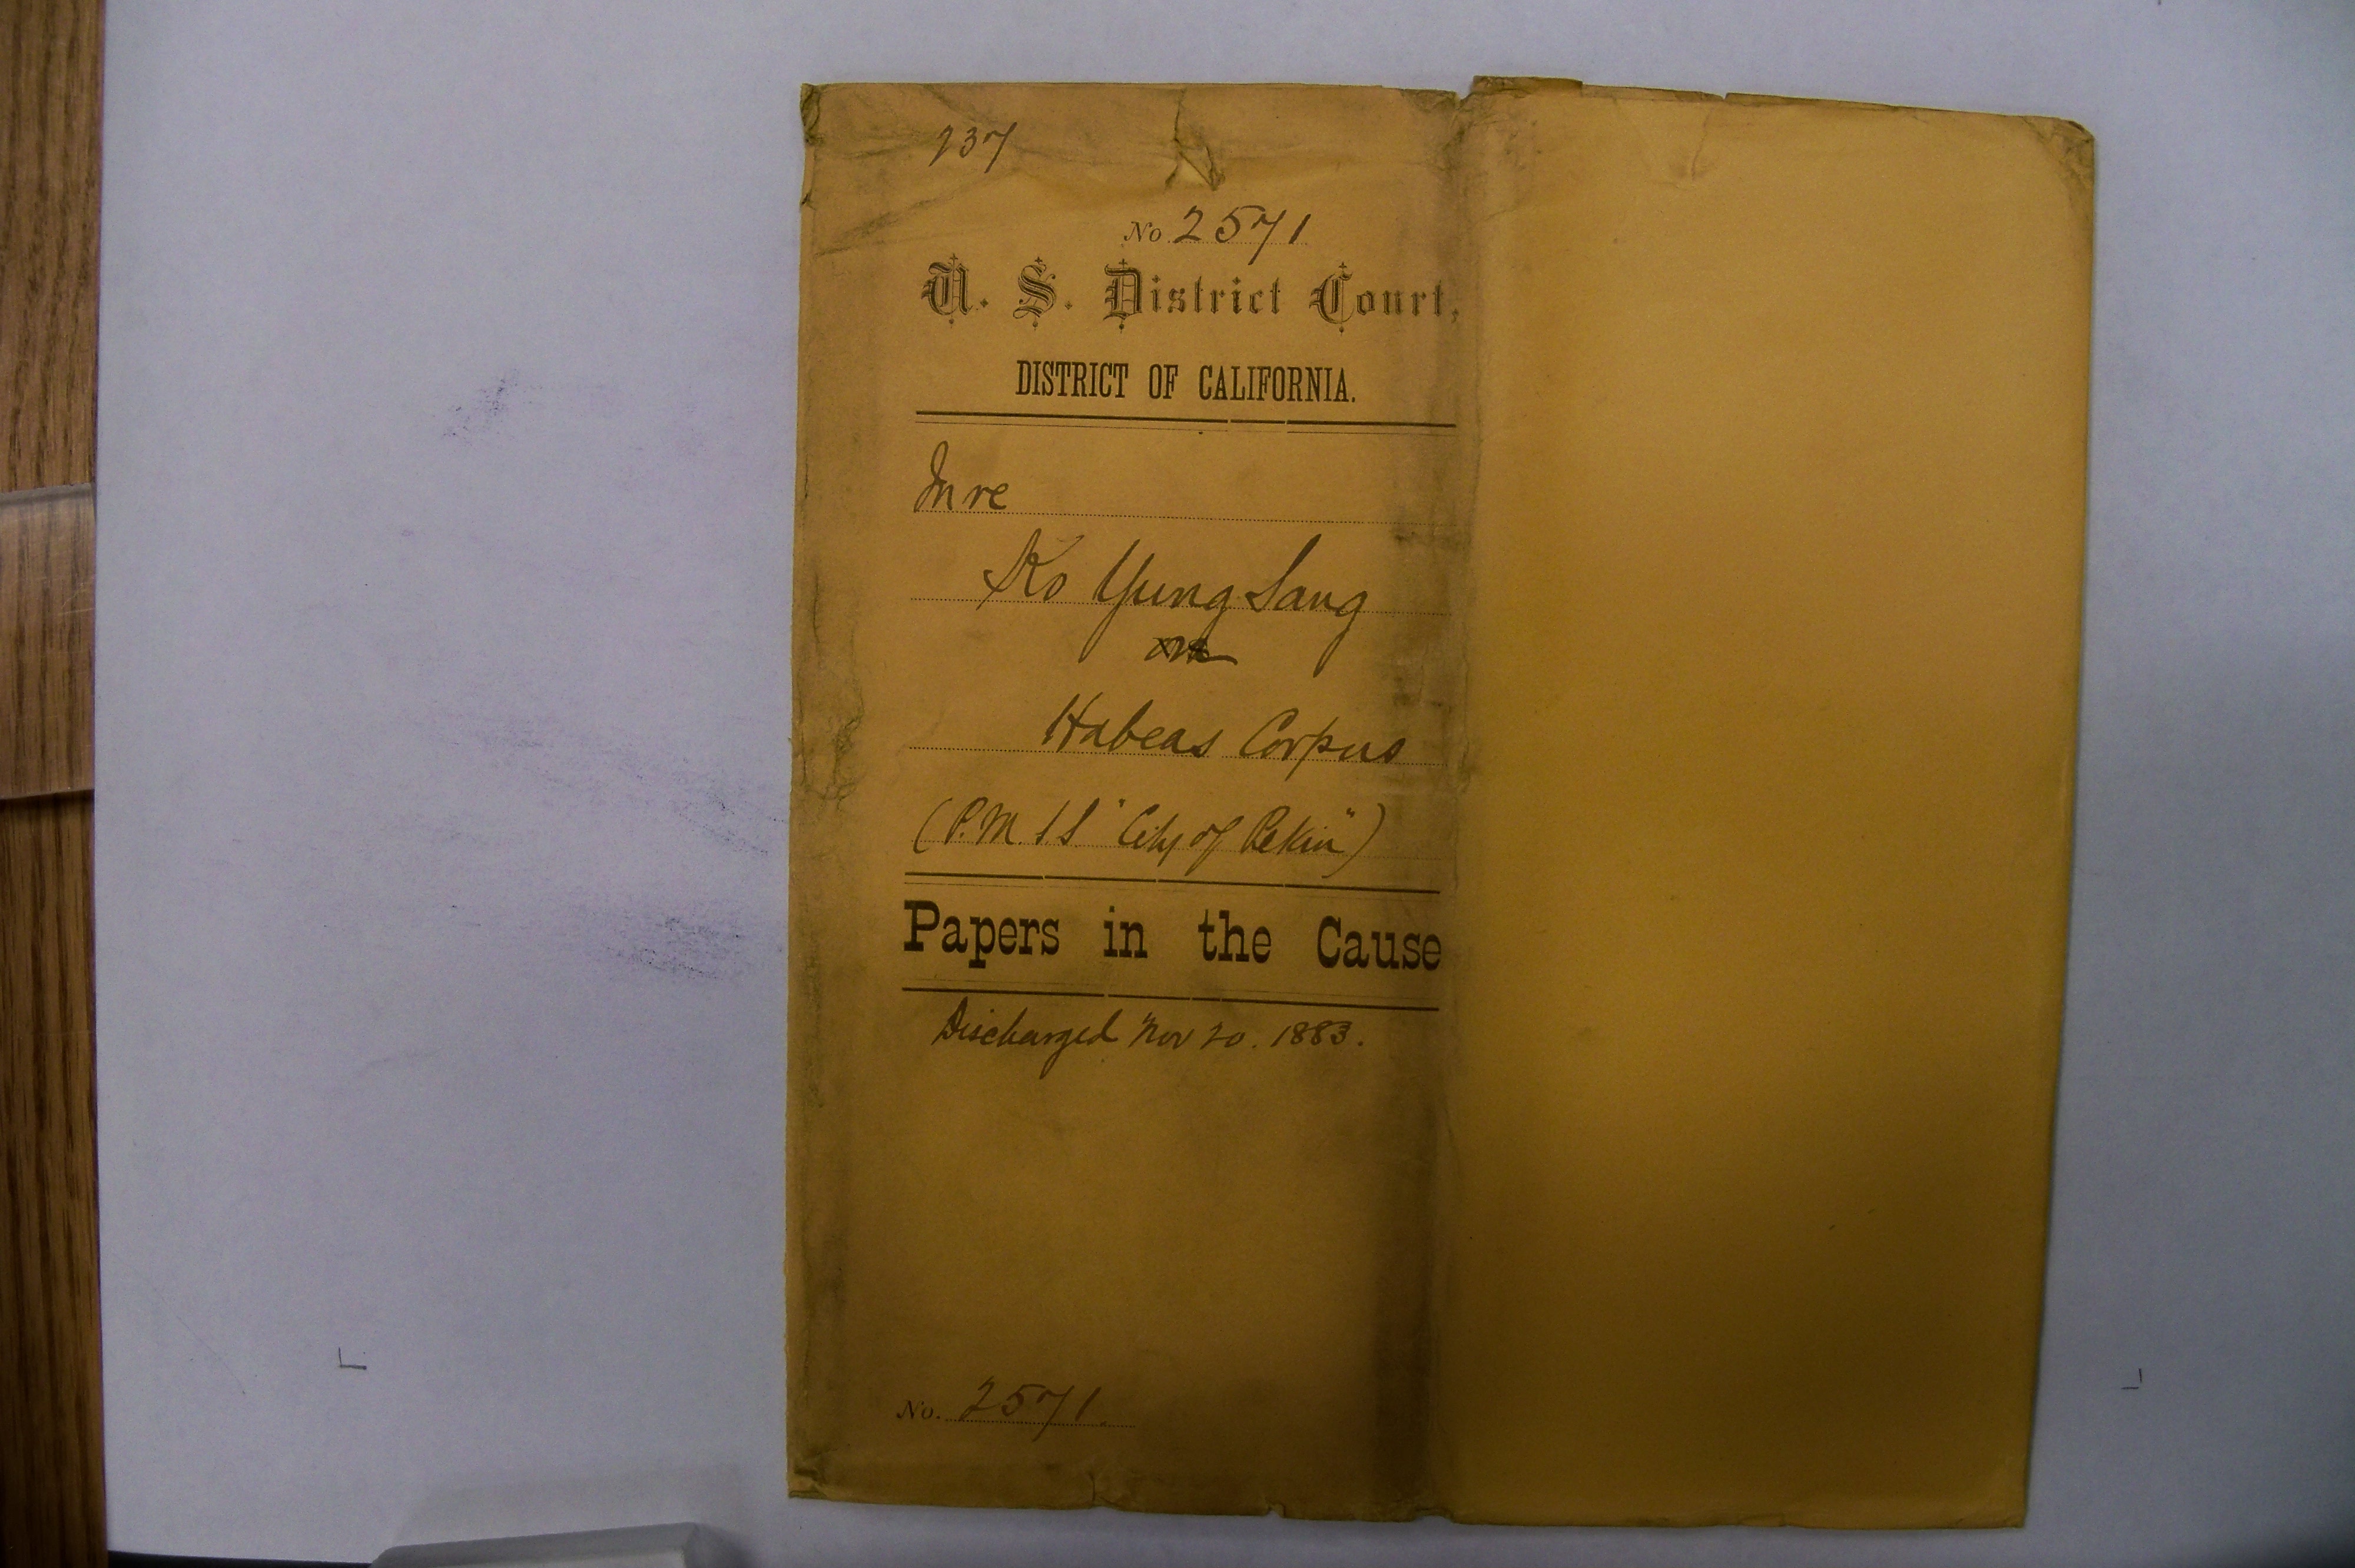 237
No 2571
U. S. District Court,
DISTRICT OF CALIFORNIA.
In re
Ko Yung Sang
on
Habeas Corpus
(P.M.S.S "City of Pekin")
Papers in the Cause
Discharged Nov 20. 1883.
No. 2571.